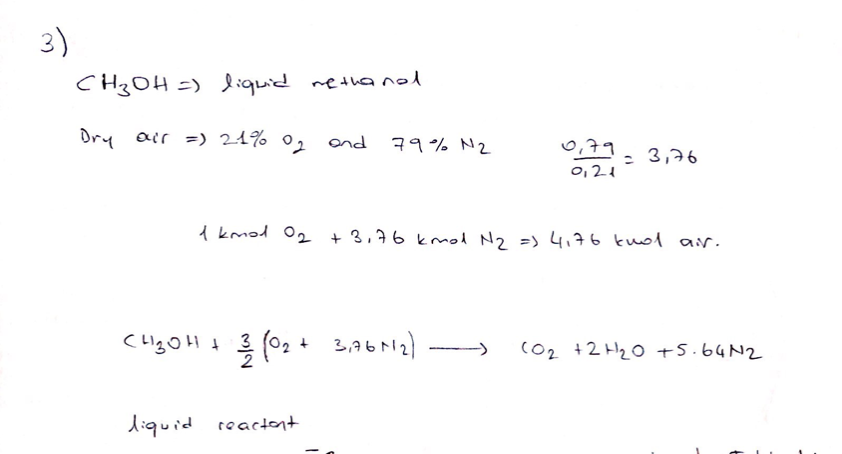 3)
CH3OH => liquid methanol
Dry air => 21% O2 and 79% N2 0,79/0,21 = 3,76
1 kmol O2 + 3,76 kmol N2 => 4,76 kmol air.
CH3OH + 3/2 (O2 + 3,76N2) → CO2 + 2H2O + 5.64N2
liquid reactant